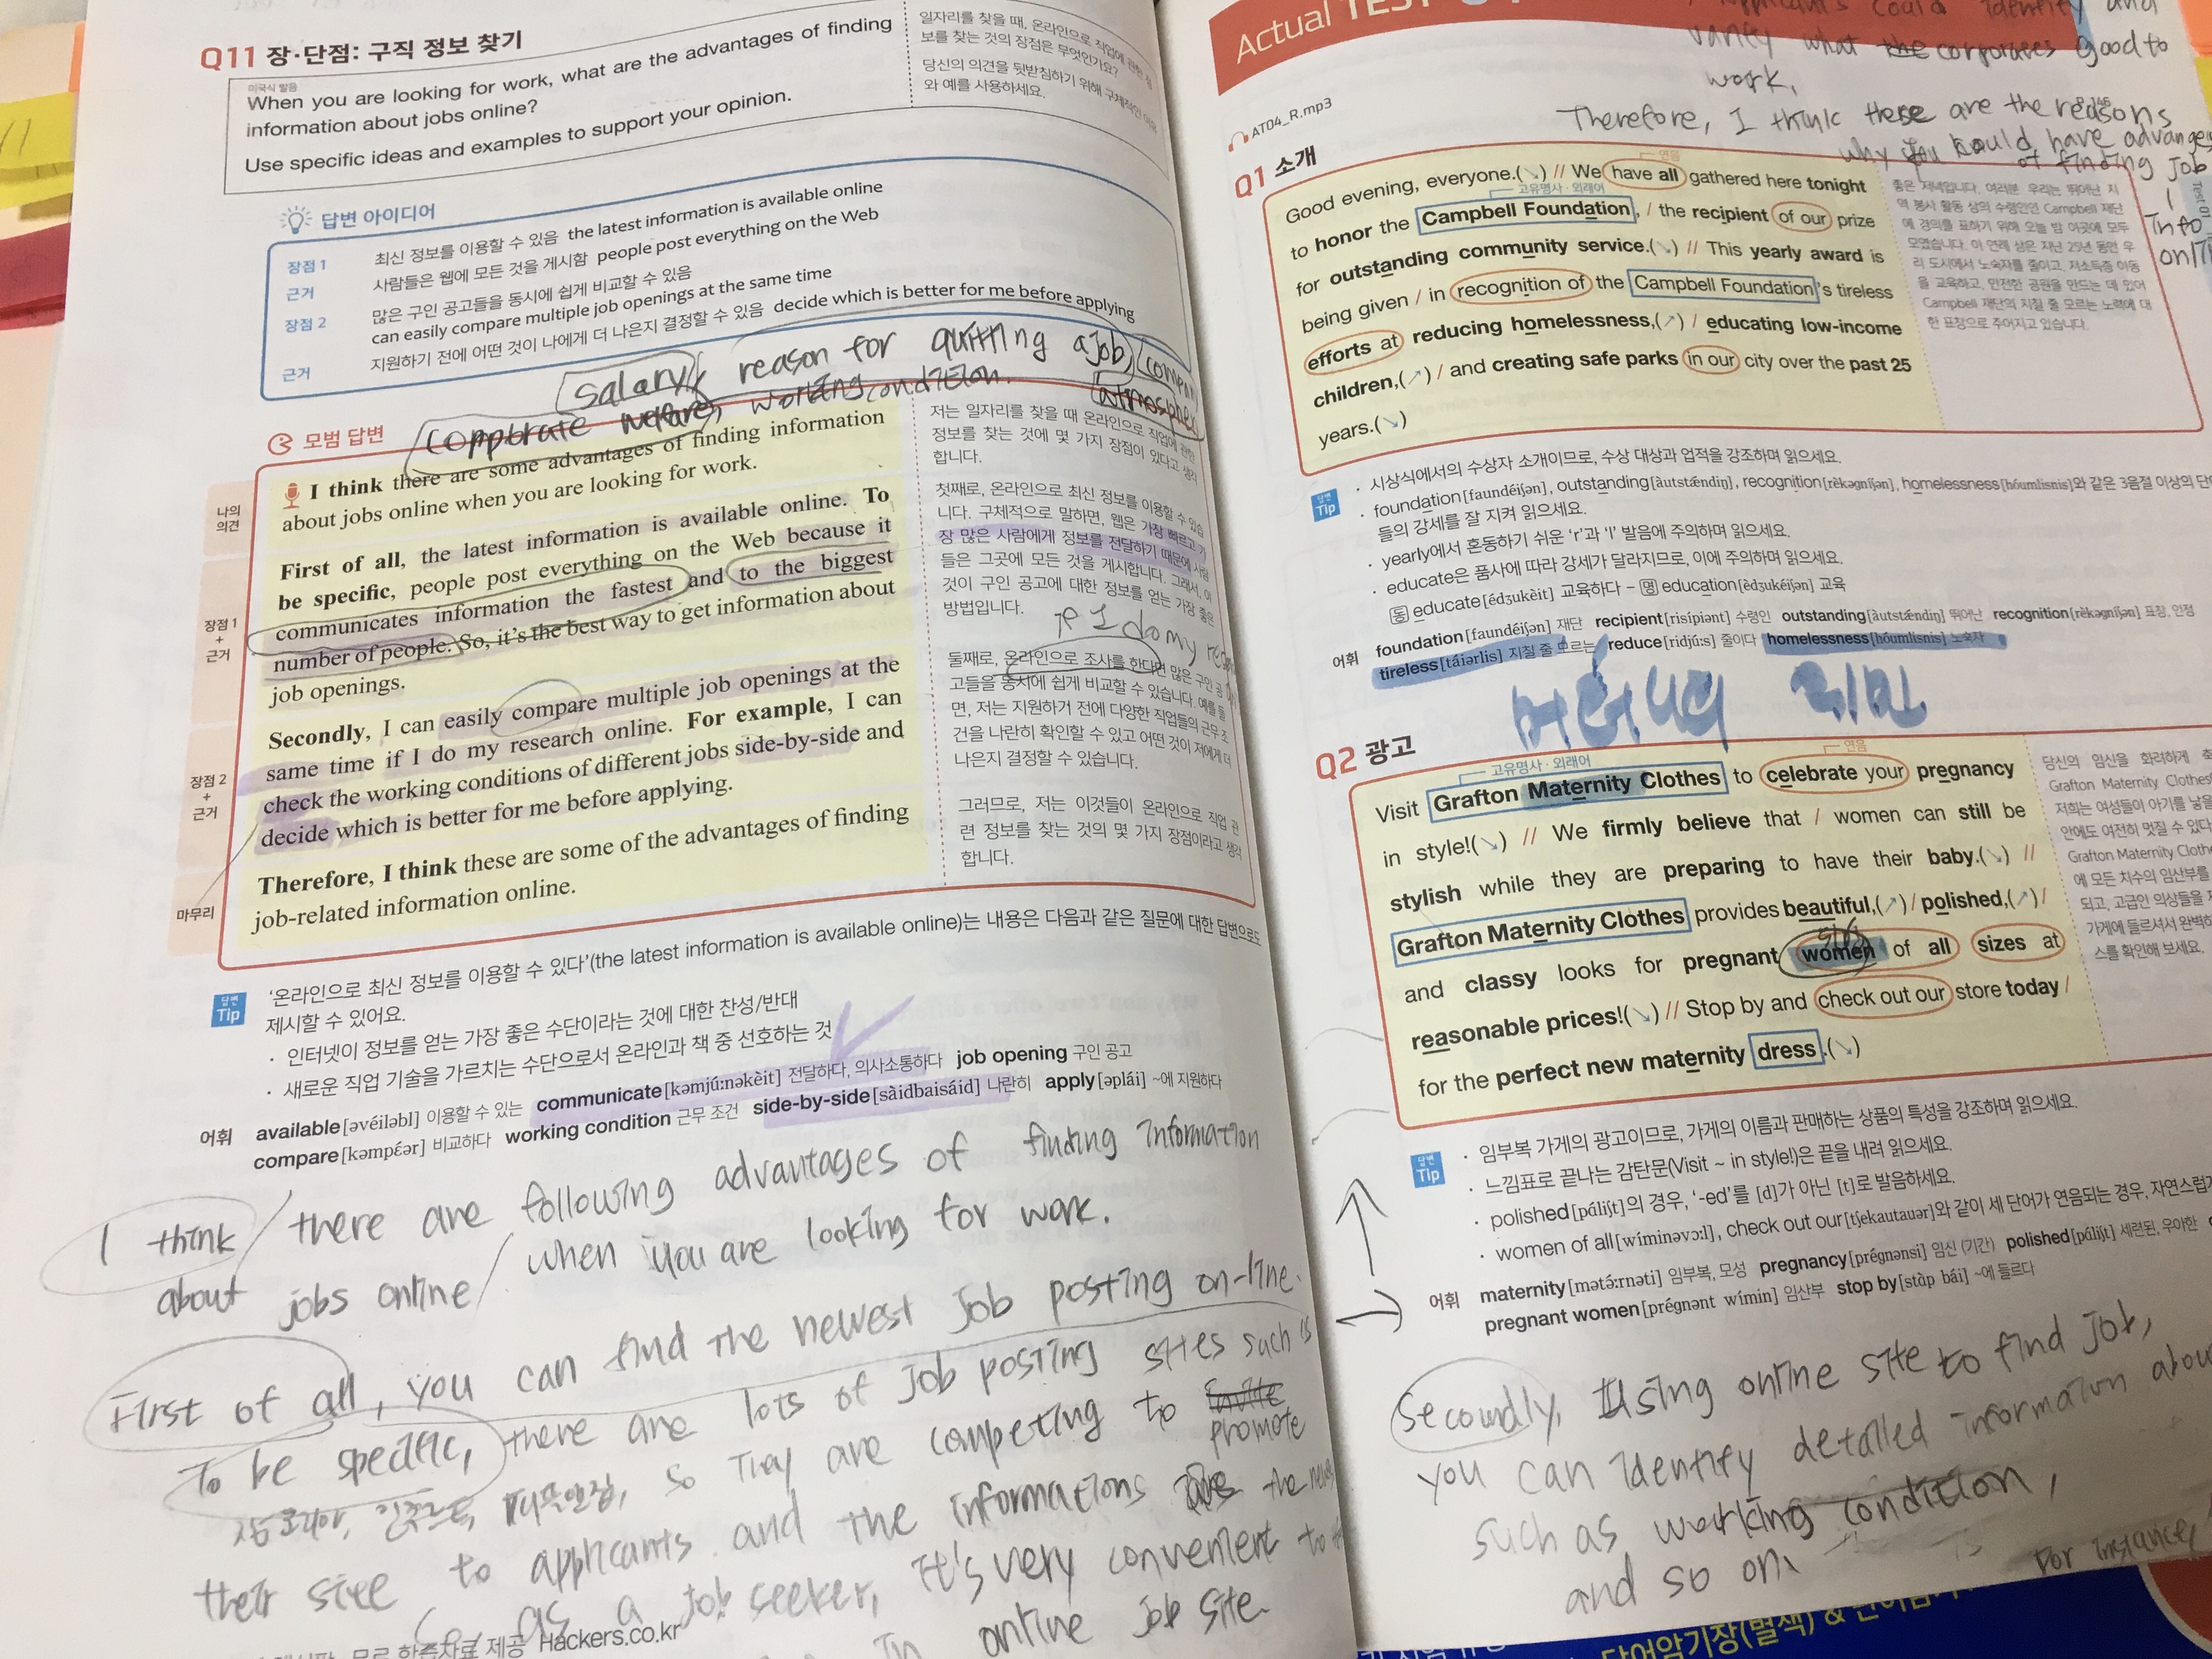 Q11 장·단점: 구직 정보 찾기
미국식 발음
When you are looking for work, what are the advantages of finding
information about jobs online?
Use specific ideas and examples to support your opinion.
일자리를 찾을 때, 온라인으로 직업에 관한 정
보를 찾는 것의 장점은 무엇인가요?
당신의 의견을 뒷받침하기 위해 구체적인
와 예를 사용하세요.
답변 아이디어
장점 1 최신 정보를 이용할 수 있음 the latest information is available online
근거 사람들은 웹에 모든 것을 게시함 people post everything on the Web
장점 2 많은 구인 공고들을 동시에 쉽게 비교할 수 있음
can easily compare multiple job openings at the same time
근거 지원하기 전에 어떤 것이 나에게 더 나은지 결정할 수 있음 decide which is better for me before applying
salary reason for quitting a job,
working condition.
모범 답변
나의
의견
I think there are some advantages of finding information
about jobs online when you are looking for work.
장점 1
+
근거
First of all, the latest information is available online. To
be specific, people post everything on the Web because it
communicates information the fastest and to the biggest
number of people. So, it's the best way to get information about
job openings.
장점 2
+
근거
Secondly, I can easily compare multiple job openings at the
same time if I do my research online. For example, I can
check the working conditions of different jobs side-by-side and
decide which is better for me before applying.
마무리
Therefore, I think these are some of the advantages of finding
job-related information online.
저는 일자리를 찾을 때 온라인으로 직업에 관한
정보를 찾는 것에 몇 가지 장점이 있다고 생각
합니다.
첫째로, 온라인으로 최신 정보를 이용할 수 있습
니다. 구체적으로 말하면, 웹은 가장 빠르고 가
장 많은 사람에게 정보를 전달하기 때문에 사람
들은 그곳에 모든 것을 게시합니다. 그래서, 이
것이 구인 공고에 대한 정보를 얻는 가장 좋은
방법입니다.
I do my
둘째로, 온라인으로 조사를 한다면 많은 구인 공
고들을 동시에 쉽게 비교할 수 있습니다. 예를 들
면, 저는 지원하기 전에 다양한 직업들의 근무 조
건을 나란히 확인할 수 있고 어떤 것이 저에게 더
나은지 결정할 수 있습니다.
그러므로, 저는 이것들이 온라인으로 직업 관
련 정보를 찾는 것의 몇 가지 장점이라고 생각
합니다.
답변
Tip
'온라인으로 최신 정보를 이용할 수 있다'(the latest information is available online)는 내용은 다음과 같은 질문에 대한 답변으로도
제시할 수 있어요.
· 인터넷이 정보를 얻는 가장 좋은 수단이라는 것에 대한 찬성/반대
· 새로운 직업 기술을 가르치는 수단으로서 온라인과 책 중 선호하는 것
어휘 available[əvéiləbl] 이용할 수 있는 communicate[kəmjú:nəkèit] 전달하다, 의사소통하다 job opening 구인 공고
compare[kəmpέər] 비교하다 working condition 근무 조건 side-by-side[sàidbaisáid] 나란히 apply[əplái] ~에 지원하다
I think / there are following advantages of finding information
about jobs online / when you are looking for work.
First of all, you can find the newest job posting on-line.
To be specific, there are lots of job posting sites such
so they are competing to promote
their site to applicants and the informations
as a job seeker, It's very convenient to
online job site.
무료 학습자료 제공 Hackers.co.kr
Actual TEST
applicants could identify and
what the good to
work,
Therefore, I think these are the reasons
why you could have
of finding job
AT04_R.mp3
Q1 소개
연음
고유명사·외래어
Good evening, everyone.(↘) // We have all gathered here tonight
to honor the Campbell Foundation, / the recipient of our prize
for outstanding community service.(↘) // This yearly award is
being given / in recognition of the Campbell Foundation's tireless
efforts at reducing homelessness,(↗) / educating low-income
children,(↗) / and creating safe parks in our city over the past 25
years.(↘)
좋은 저녁입니다, 여러분. 우리는 뛰어난 지
역 봉사 활동 상의 수령인인 Campbell 재단
에 경의를 표하기 위해 오늘 밤 이곳에 모두
모였습니다. 이 연례 상은 지난 25년 동안 우
리 도시에서 노숙자를 줄이고, 저소득층 아동
을 교육하고, 안전한 공원을 만드는 데 있어
Campbell 재단의 지칠 줄 모르는 노력에 대
한 표창으로 주어지고 있습니다.
답변
Tip
· 시상식에서의 수상자 소개이므로, 수상 대상과 업적을 강조하며 읽으세요.
· foundation[faundéiʃən], outstanding[àutstǽndiŋ], recognition[rèkəgníʃən], homelessness[hóumlisnis]와 같은 3음절 이상의 단어
들의 강세를 잘 지켜 읽으세요.
· yearly에서 혼동하기 쉬운 'r'과 'l' 발음에 주의하며 읽으세요.
· educate은 품사에 따라 강세가 달라지므로, 이에 주의하며 읽으세요.
동 educate[édʒukèit] 교육하다 – 명 education[èdʒukéiʃən] 교육
어휘 foundation[faundéiʃən] 재단 recipient[risípiənt] 수령인 outstanding[àutstǽndiŋ] 뛰어난 recognition[rèkəgníʃən] 표창, 인정
tireless[táiərlis] 지칠 줄 모르는 reduce[ridjú:s] 줄이다 homelessness[hóumlisnis] 노숙자
Q2 광고
고유명사·외래어
연음
Visit Grafton Maternity Clothes to celebrate your pregnancy
in style!(↘) // We firmly believe that / women can still be
stylish while they are preparing to have their baby.(↘) //
Grafton Maternity Clothes provides beautiful,(↗) / polished,(↗) /
and classy looks for pregnant women of all sizes at
reasonable prices!(↘) // Stop by and check out our store today /
for the perfect new maternity dress.(↘)
당신의 임신을 화려하게
Grafton Maternity Clothes
저희는 여성들이 아기를 낳을
안에도 여전히 멋질 수 있다
Grafton Maternity Clothe
에 모든 치수의 임산부를
되고, 고급인 의상들을
가게에 들르셔서 완벽한
스를 확인해 보세요.
답변
Tip
· 임부복 가게의 광고이므로, 가게의 이름과 판매하는 상품의 특성을 강조하며 읽으세요.
· 느낌표로 끝나는 감탄문(Visit ~ in style!)은 끝을 내려 읽으세요.
· polished[páliʃt]의 경우, '-ed'를 [d]가 아닌 [t]로 발음하세요.
· women of all[wíminəvɔ:l], check out our[tʃekautauər]와 같이 세 단어가 연음되는 경우, 자연스럽게
어휘 maternity[mətə́:rnəti] 임부복, 모성 pregnancy[prégnənsi] 임신 (기간) polished[páliʃt] 세련된, 우아한
pregnant women[prégnənt wímin] 임산부 stop by[stàp bái] ~에 들르다
Secondly, Using online site to find job,
you can identify detailed information about
such as working condition,
and so on.
For instance,